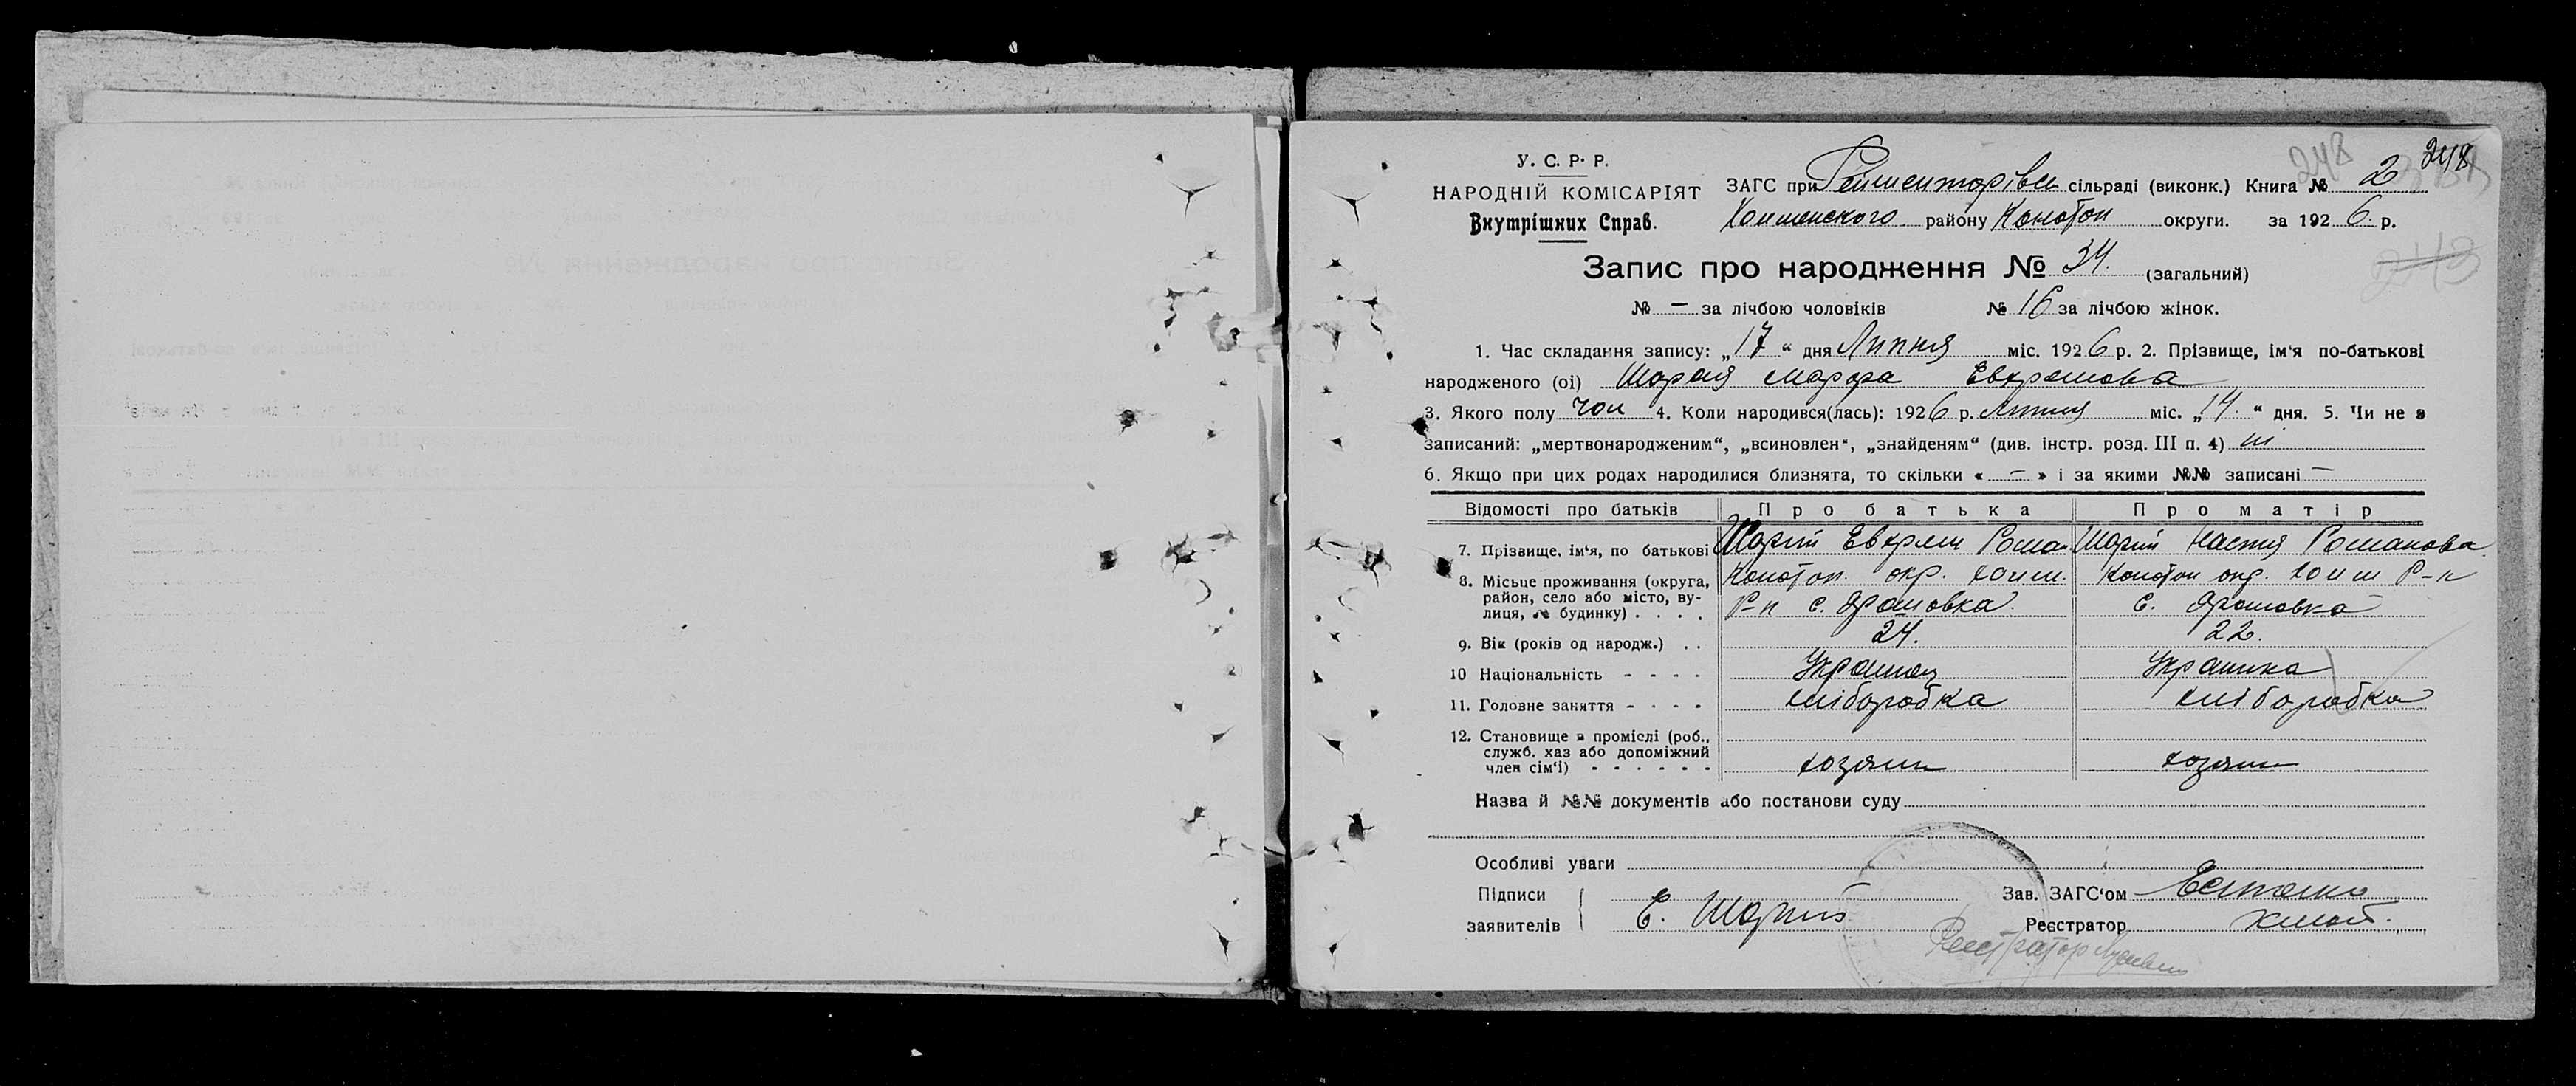 248
248
У. С. Р. Р.
НАРОДНІЙ КОМІСАРІЯТ
Внутрішних Справ.
ЗАГС при Рейментарівськ сільраді (виконк.) Книга № 2
району Конотоп округи. за 1926 р.
243
Запис про народження № 34. (загальний)
№ — за лічбою чоловіків № 16 за лічбою жінок.
1. Час складання запису: „17“ дня Липня міс. 1926 р. 2. Прізвище, ім'я по-батькові
народженого (ої) Шарая Марфа Евхремова
3. Якого полу чол 4. Коли народився(лась): 1926 р. Липня міс. „14.“ дня. 5. Чи не є
записаний: „мертвонародженим“, „всиновлен“, „знайденям“ (див. інстр. розд. III п. 4) ні
6. Якщо при цих родах народилися близнята, то скільки « — » і за якими №№ записані —
Відомості про батьків Про батька Про матір
7. Прізвище, ім'я, по батькові Шарий Евхрем Роман Шарий Настя Романова
8. Місьце проживання (округа, район, село або місто, вулиця, № будинку) . . . . Конотоп. окр. Холм. Р-н с. Конотоп окр. Холм Р-н с.
9. Вік (років од народж.) . . 24. 22.
10 Національність - - - - Украінец Украинка
11. Головне заняття - - - - хліборобка хліборобка
12. Становище в промислі (роб., служб. хаз або допоміжний член сім'ї) - - - - - - хозяин хозяин
Назва й №№ документів або постанови суду
Особливі уваги
Підписи
заявителів Е. Шарий
Зав. ЗАГС'ом
Реєстратор
Реєстратор